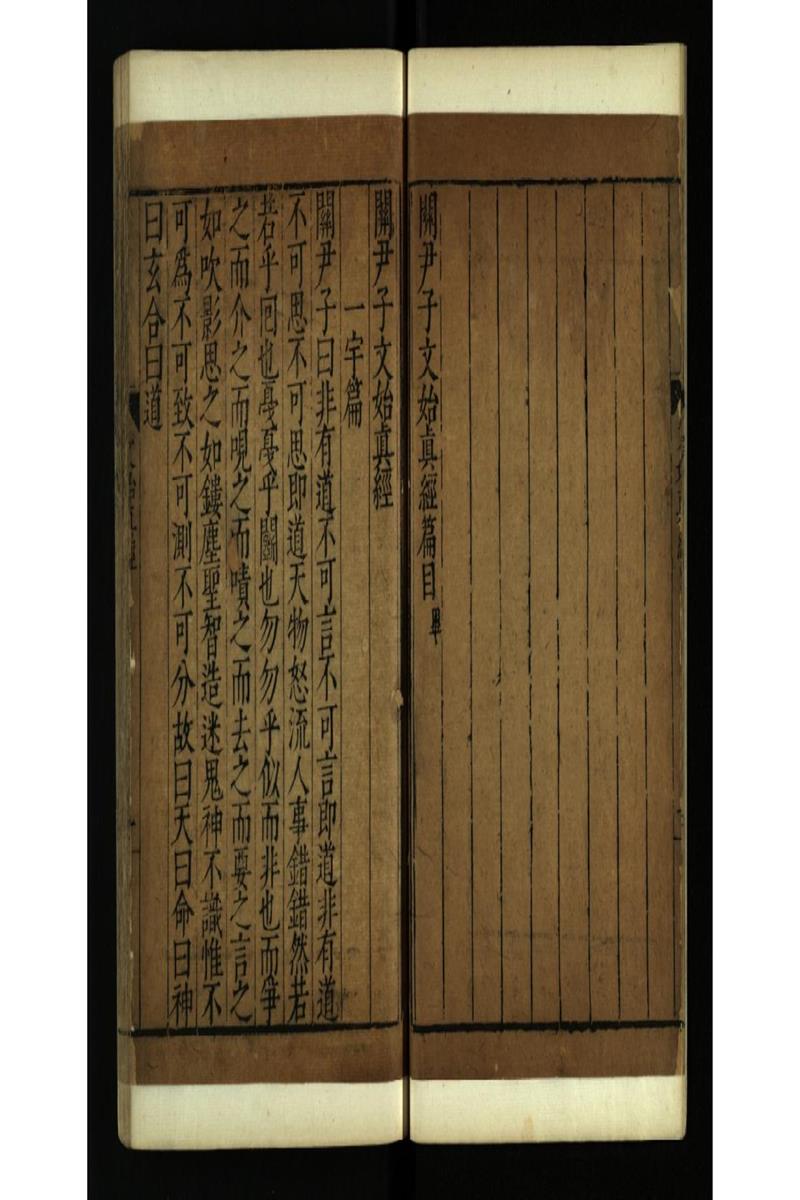 關尹子文始真經篇目畢
關尹子文始真經
一宇篇
關尹子曰非有道不可言不可言即道非有道
不可思不可思即道天物怒流人事錯錯然若
若乎回也戞戞乎鬬也勿勿乎似而非也而爭
之而介之而哯之而嘖之而去之而要之言之
如吹影思之如鏤塵聖智造迷鬼神不識惟不
可為不可致不可測不可分故曰天曰命曰神
曰玄合曰道